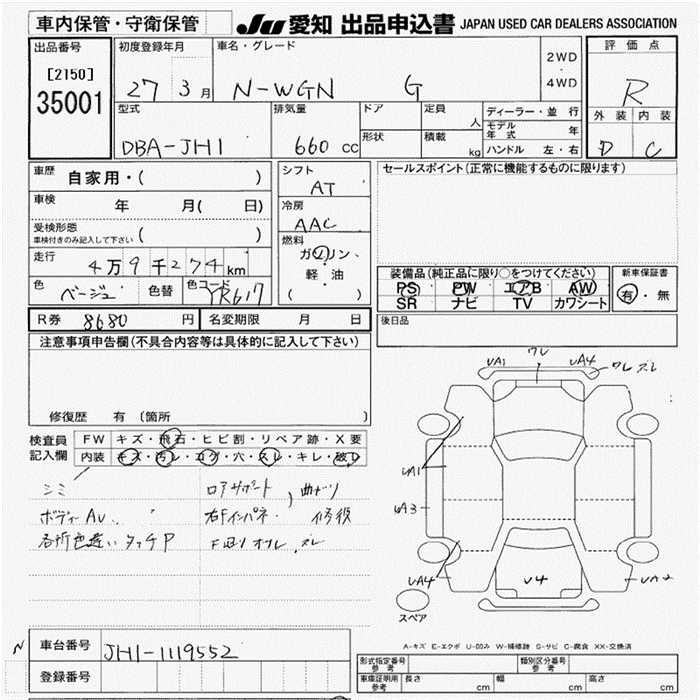 車内保管・守衛保管
JU 愛知 出品申込書 JAPAN USED CAR DEALERS ASSOCIATION
出品番号 初度登録年月 車名・グレード 2WD・4WD 評価点
[2150]
35001
27 3月 N-WGN G R
型式 排気量 ドア 定員 人 ディーラー・並行 外装 内装
モデル年式 年
DBA-JH1 660cc 形状 積載 kg ハンドル 左・右 D C
車歴 自家用・( )
シフト AT
セールスポイント(正常に機能するものに限ります)
車検 年 月( 日)
冷房 AAC
受検形態 車検付きのみ記入して下さい ( )
燃料 ガソリン・軽油 ( )
走行 4万9千274km
色 ベージュ 色替 色コード YR617
装備品(純正品に限り○をつけてください) 新車保証書
PS PW エアB AW 有・無
SR ナビ TV カワシート
R券 8680円 名変期限 月 日
後日品
注意事項申告欄(不具合内容等は具体的に記入して下さい)
修復歴 有(箇所
UA1 ワレ UA4 ワレ ズレ
UA1
UA3
UA4 U4 UA2
スペア
検査員記入欄 FW キズ・飛石・ヒビ割・リペア跡・X要
内装 キズ・汚レ・コゲ・穴・スレ・キレ・破レ
シミ ロアサポート 曲ナリ
ボディーAU. 右Fインパネ 修復
各所色違い タッチP F廻リ オフレ.ズレ
A-キズ E-エクボ U-凹み W-補修跡 S-サビ C-腐食 XX-交換済
N 車台番号 JH1-1119552
登録番号
形式指定番号 参考 類別区分番号 参考
車庫証明用 参考 長さ cm 幅 cm 高さ cm